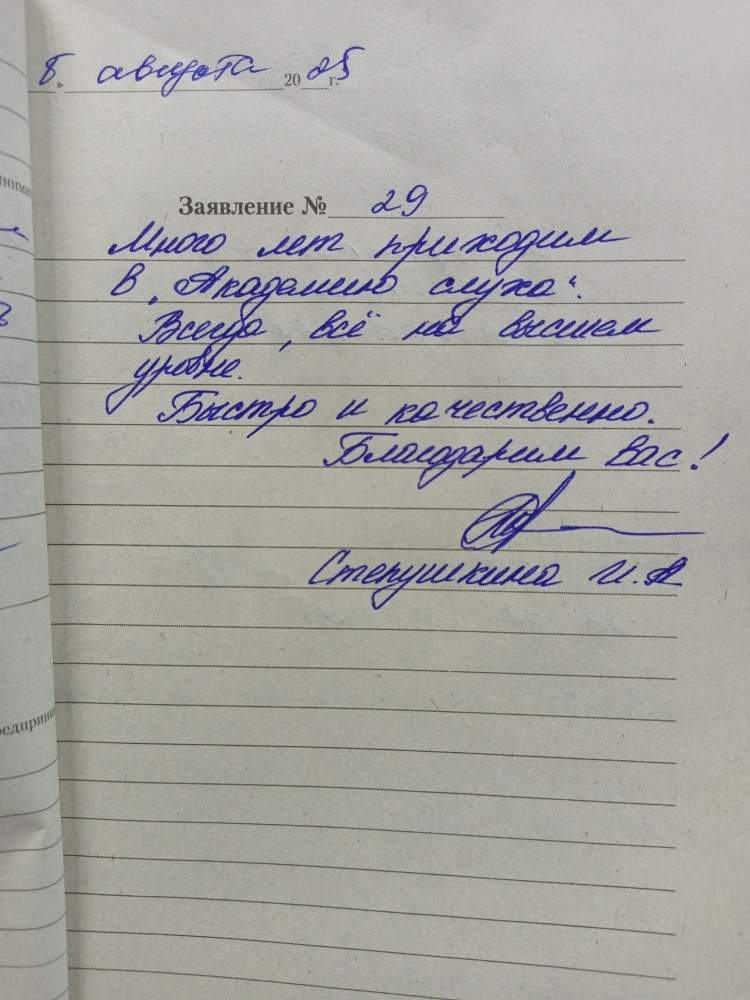 8 » августа 2025 г.
нимат
Заявление № 29
Много лет приходим
в "Академию слуха".
Всегда, всё на высшем
уровне.
Быстро и качественно.
Благодарим Вас!
Степушкина И.А
редприни